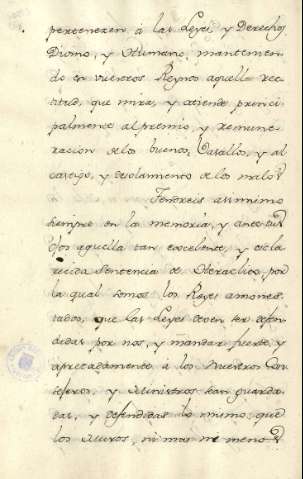 pertenezen à las Leyes, y Derechos
Divino, y Humano, mantenien-
do en vuestros Reynos aquella rec-
titud, que mira, y atiende princi-
palmente al premio, y remune-
racion de los buenos Vasallos, y al
castigo, y desolamento de los malos
Tendreis assimismo
siempre en la memoria, y ante sus
Ojos aquella tan excelente, y escla-
recida Sentencia de Heraclito, por
la qual somos los Reyes amones-
tados, que las Leyes deven ser defen-
didas por nos, y mandar fuerte, y
apretadamente à los Nuestros Con-
sejeros, y Ministros sean guarda-
das, y defendidas lo mismo que
los Muros, ni mas ni menos